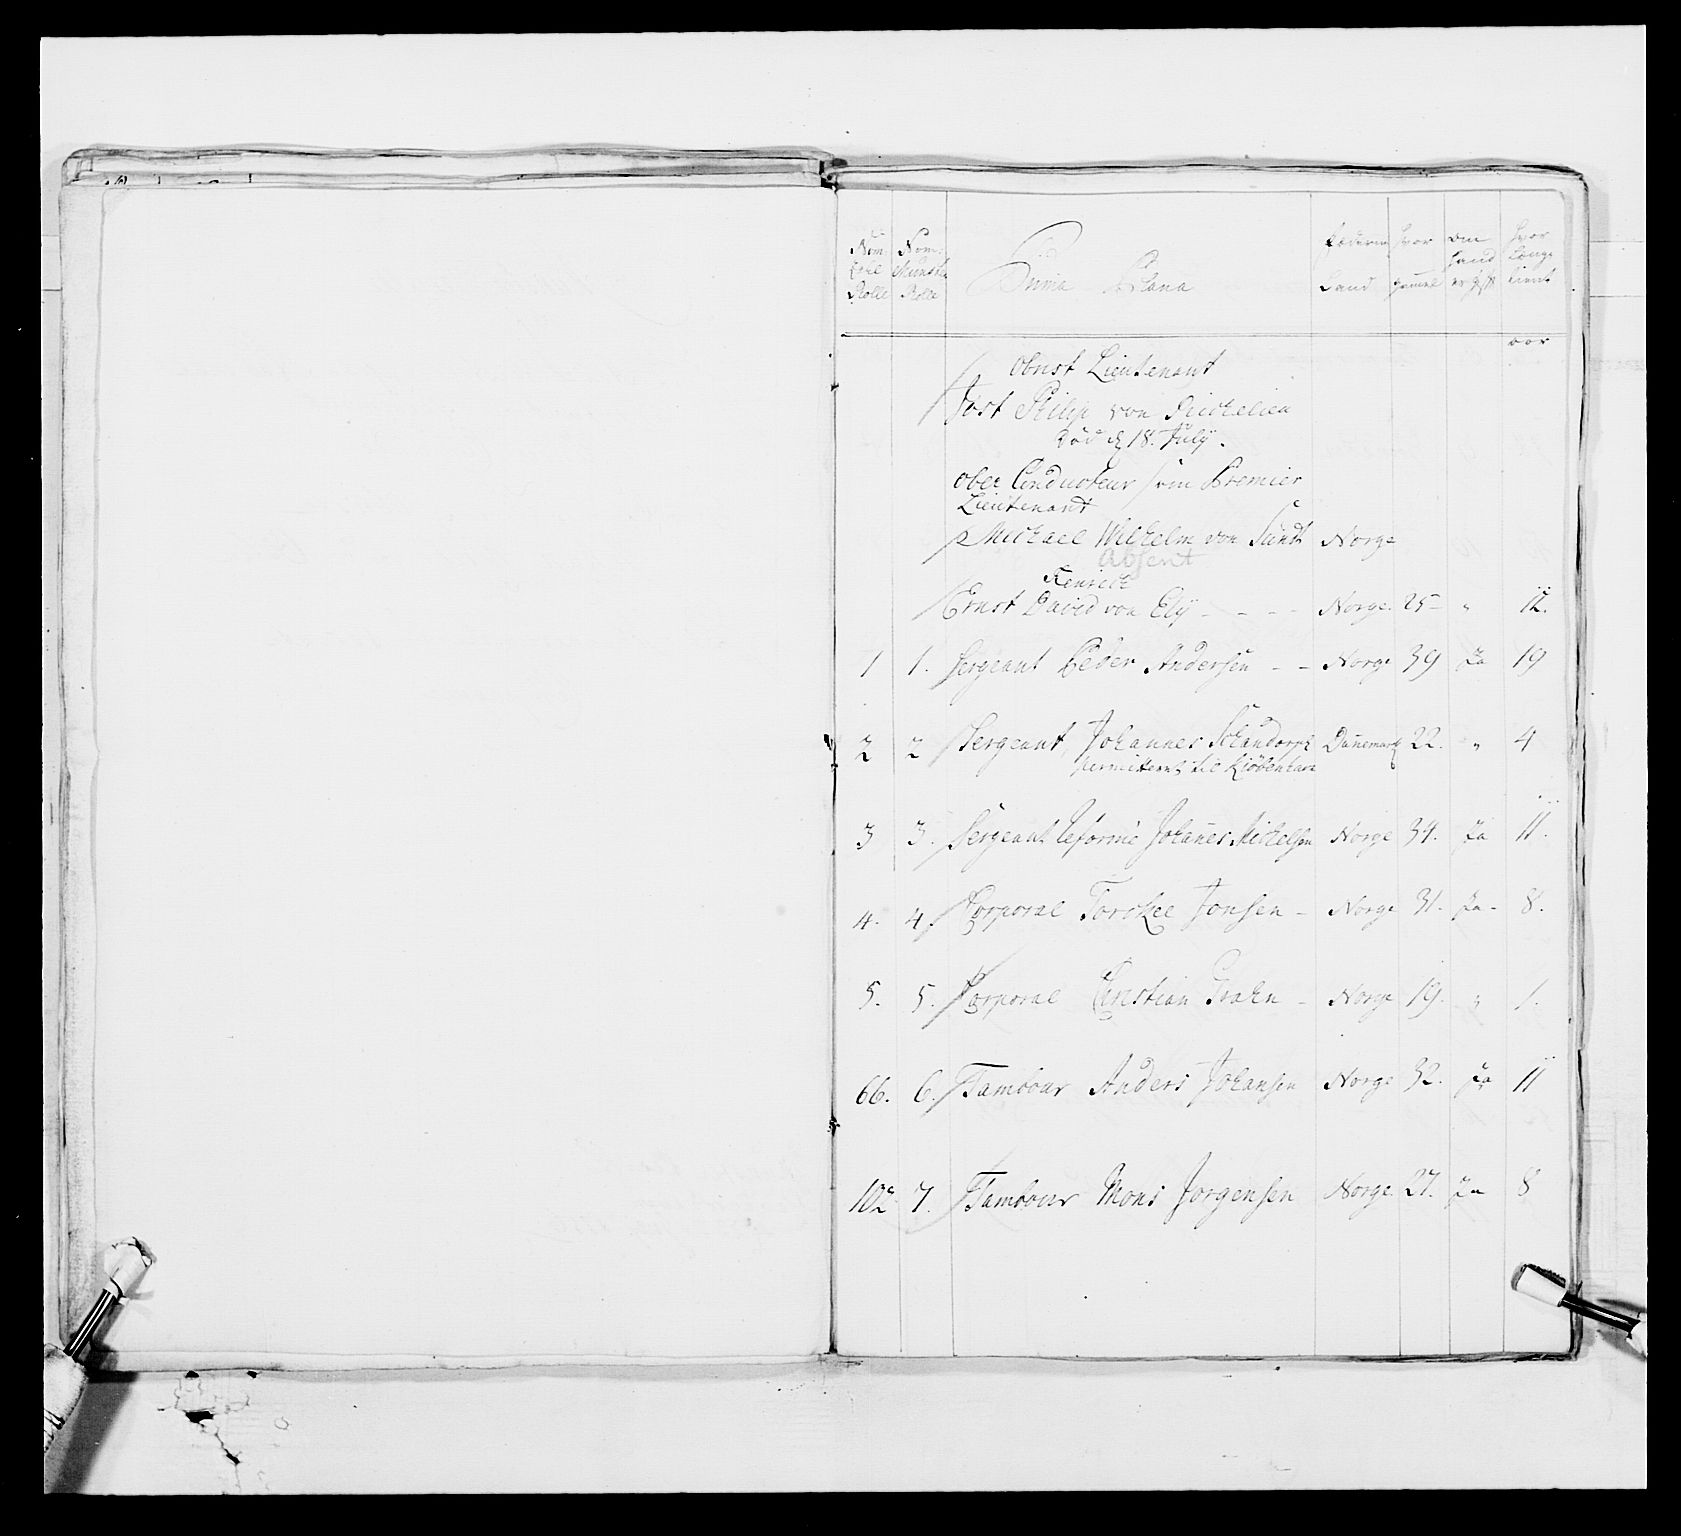 Num: Rolle
Num: Munster Rolle
Prima Plana
Føderne Land
hvor gamel
om hand er gift
hvor længe tient
aar
Obrist Lieutenant
Jost Philip von
død d 18. July.
Ober Conducteur som Premier
Lieutenant
Michael Wilhelm von Sundt Norge
Absent
Henrich
Ernst David von Ely - - - Norge. 25 - " 12.
1 1. Sergeant Peder Andersen - - Norge 39 Ja 19
2 2 Sergeant Johannes Schandorph Dannemark 22. " 4
permitteret til Kiöbenhavn
3 3. Sergeant Reformé Johannes Michelsen Norge 34. Ja 11.
4. 4 Corporal Torckel Jonsen - Norge 31. Ja - 8.
5. 5. Corporal Christian Grahn - Norge 19. " 1.
66. 6. Tambour Anders Johansen Norge 32. Ja 11
102 7. Tambour Mons Jorgensen Norge. 27. Ja 8